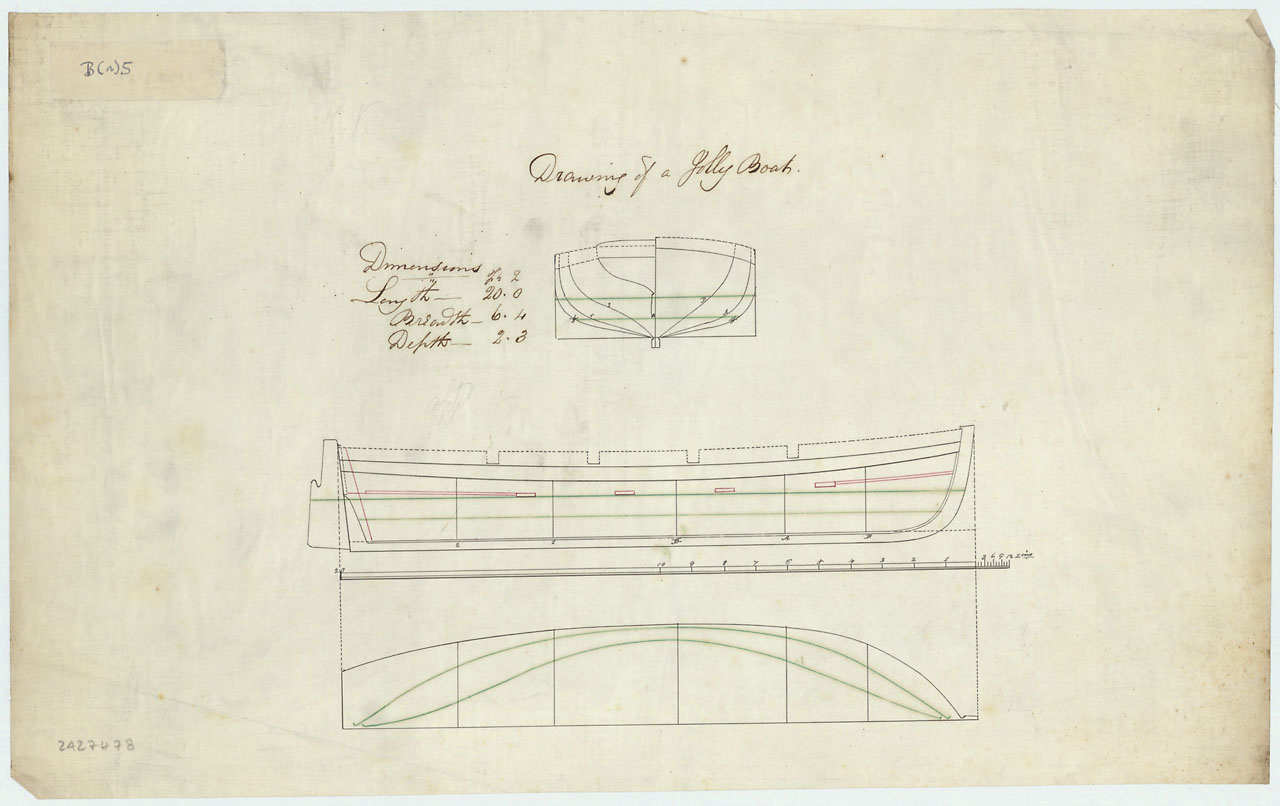 B(N)5
Drawing of a Jolly Boat.
Dimensions
Ft. 2
Length — 20.0
Breadth — 6.4
Depth — 2.3
20 10 9 8 7 6 5 4 3 2 1 3 6 9 12 ins
2427478